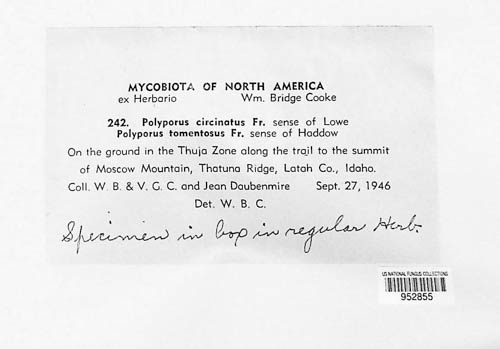 MYCOBIOTA OF NORTH AMERICA
ex Herbario Wm. Bridge Cooke
242. Polyporus circinatus Fr. sense of Lowe
Polyporus tomentosus Fr. sense of Haddow
On the ground in the Thuja Zone along the trail to the summit
of Moscow Mountain, Thatuna Ridge, Latah Co., Idaho.
Coll. W. B. & V. G. C. and Jean Daubenmire Sept. 27, 1946
Det. W. B. C.
Specimen in box in regular Herb.
US NATIONAL FUNGUS COLLECTIONS
952855